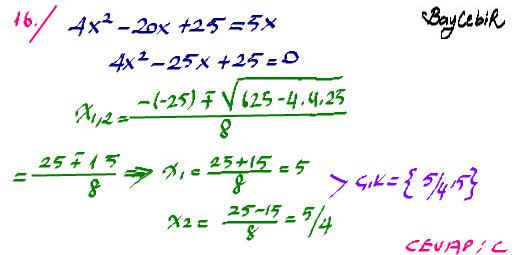 16./ 4x² -20x +25 = 5x
BayCebiR
4x² -25x +25 = 0
x₁,₂ = (-(-25) ∓ √(625 - 4.4.25)) / 8
= (25 ∓ 15) / 8 ⇒ x₁ = (25+15) / 8 = 5
x₂ = (25-15) / 8 = 5/4
> Ç.K = { 5/4, 5 }
CEVAP: C